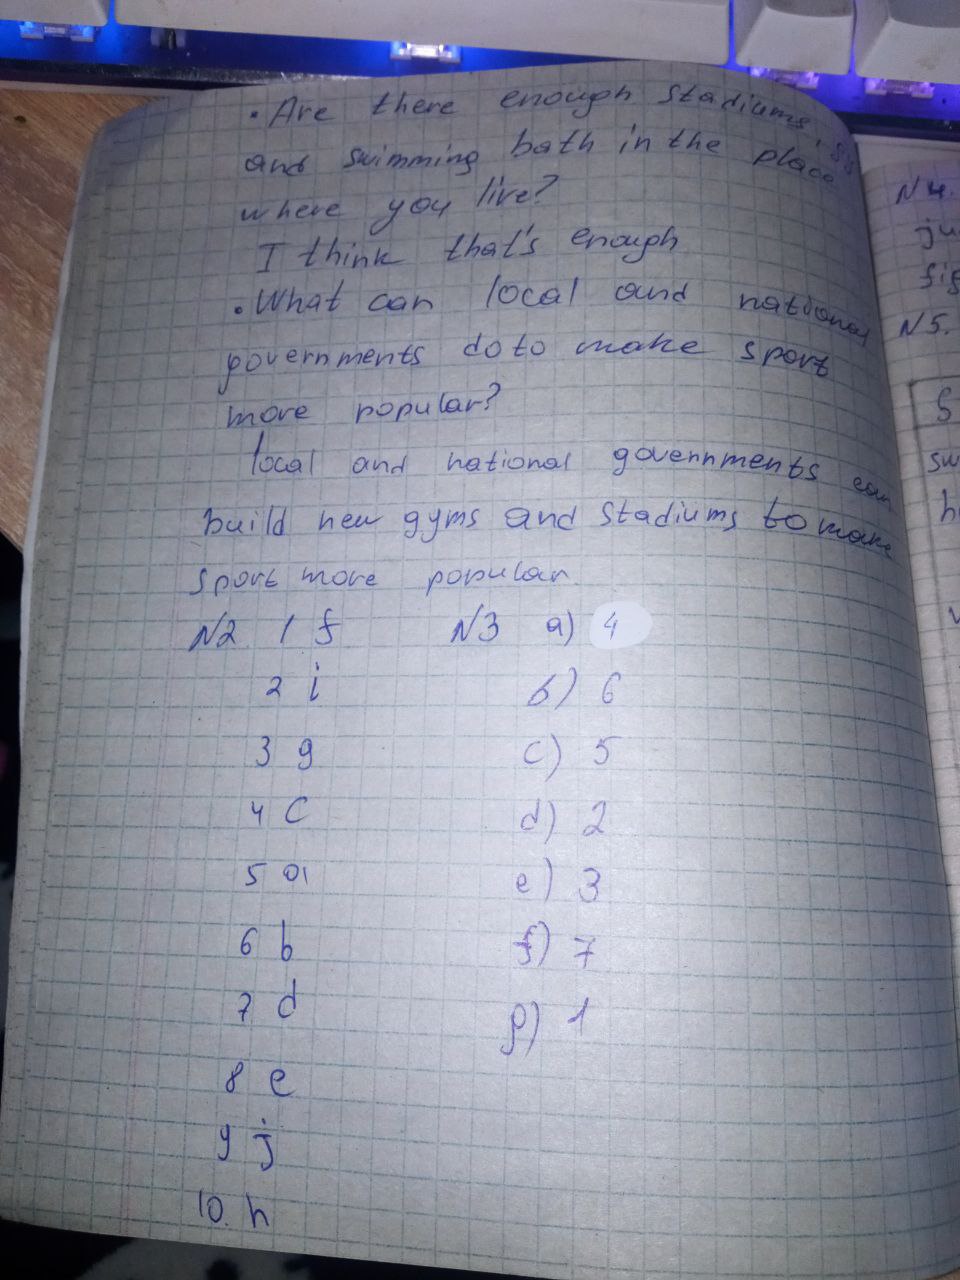 • Are there enough stadiums,
and swimming bath in the place
where you live?
I think that's enough
• What can local and national
governments do to make sport
more popular?
local and national governments can
build new gyms and stadiums to make
sport more popular.
N2. 1 f N3 a) 4
2 i b) 6
3 g c) 5
4 c d) 2
5 a e) 3
6 b f) 7
7 d g) 1
8 e
9 j
10. h
N4.
N5.